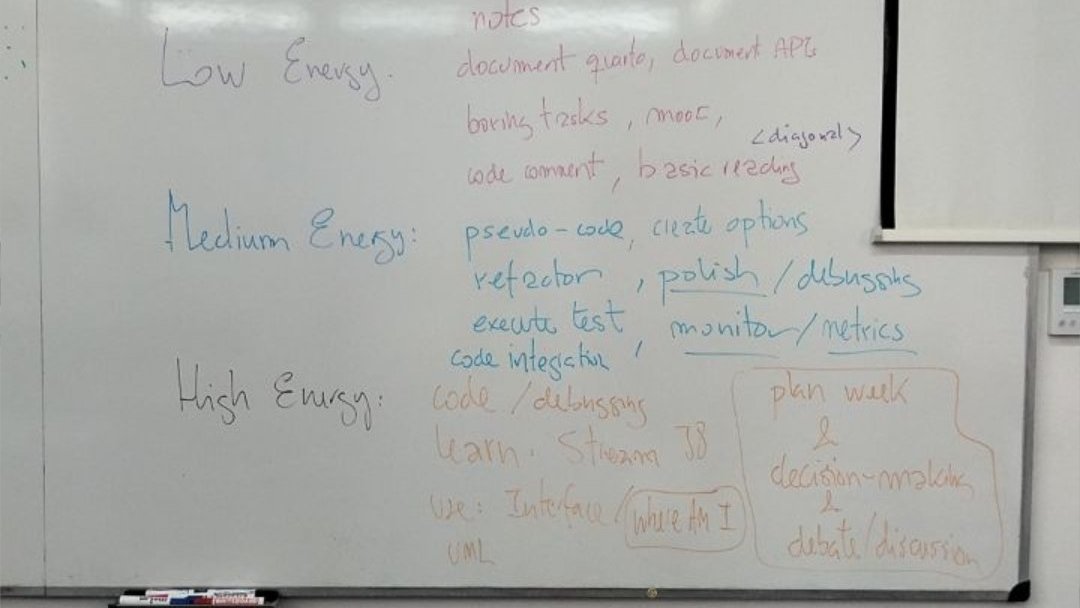 notes
Low Energy.
document quarto, document API
boring tasks, mooc,
<diagonal>
code comment, basic reading
Medium Energy: pseudo-code, create options
refactor, polish/debugging
execute test, monitor/metrics
code integration
High Energy: code/debugging
learn. Stream J8
use: Interface/where Am I
UML
plan week
&
decision-making
&
debate/discussion